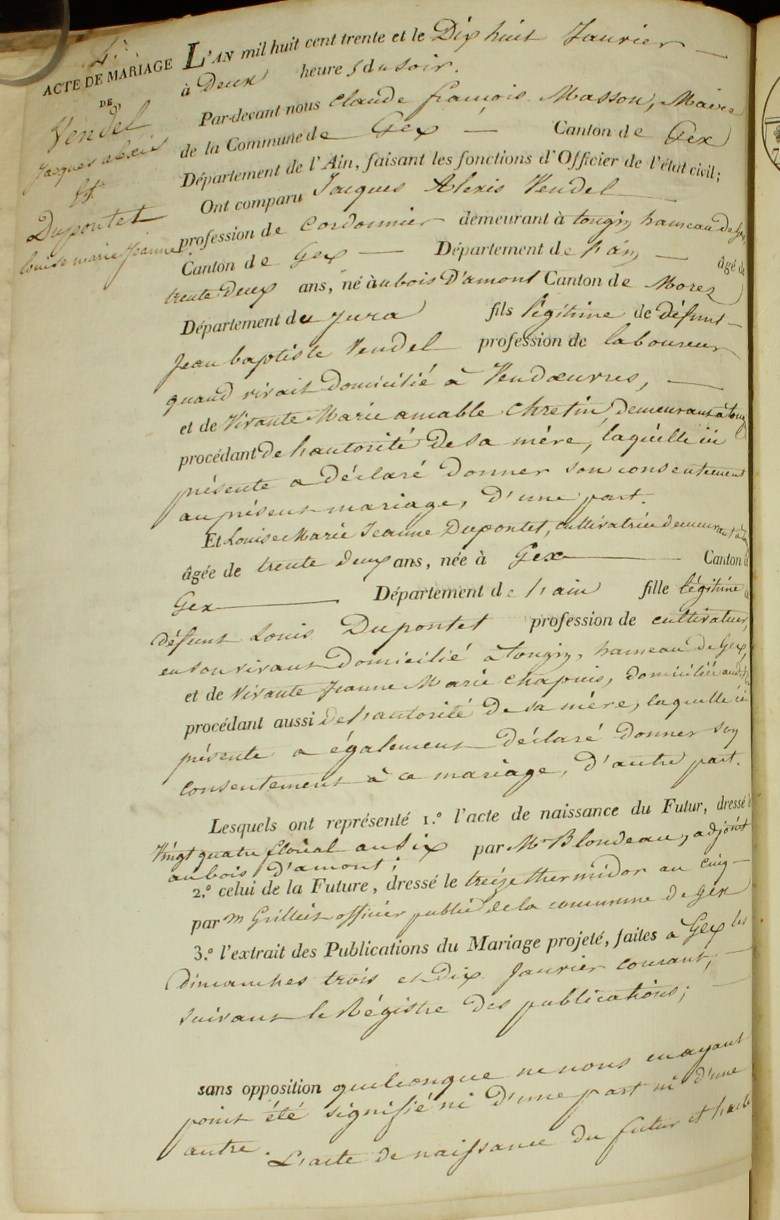 4.e
ACTE DE MARIAGE
DE
Vendel
Jacques alexis
Et
Dupontet
louise marie Jeanne
L'AN mil huit cent trente et le Dix huit Janvier
à Deux heures du soir.
Par-devant nous claude françois Masson, Maire
de la Commune de Gex Canton de Gex
Département de l'Ain, faisant les fonctions d'Officier de l'état civil;
Ont comparu Jacques Alexis Vendel
profession de Cordonnier demeurant à tougin hameau de Gex,
Canton de Gex Département de l'ain âgé de
trente Deux ans, né au bois D'amont Canton de Morez
Département du Jura fils légitime de Défunt
Jean baptiste Vendel profession de laboureur
quand vivait Domicilié à Vendœuvres,
et de Vivante Marie amable Chretin, Demeurant à toug
procédant De l'autorité De sa mère, laquelle ici
présente a Déclaré Donner son consentement
au présent mariage, D'une part.
Et Louise Marie Jeanne Dupontet, cultivatrice Demeurant à
âgée de trente deux ans, née à Gex Canton d
Gex Département de l'ain fille légitime d
Défunt Louis Dupontet profession de cultivateur,
en son vivant Domicilié à Tougin, hameau De Gex,
et de Vivante Jeanne Marie Chapuis, domiciliée
procédant aussi De l'autorité De sa mère, laquelle ici
présente a également Déclaré Donner son
consentement à ce mariage, D'autre part.
Lesquels ont représenté 1.º l'acte de naissance du Futur, dressé l
Vingt quatre floréal an Six par Mr Blondeau, adjoint
au bois D'amont;
2.º celui de la Future, dressé le treize thermidor an cinq
par m Grillet officier public de la commune de gex
3.º l'extrait des Publications du Mariage projeté, faites à Gex les
Dimanches trois et Dix Janvier courant,
suivant le Régistre Des publications;
sans opposition quelconque ne nous en ayant
point été signifié ni D'une part ni D'une
autre. L'acte De naissance Du futur et